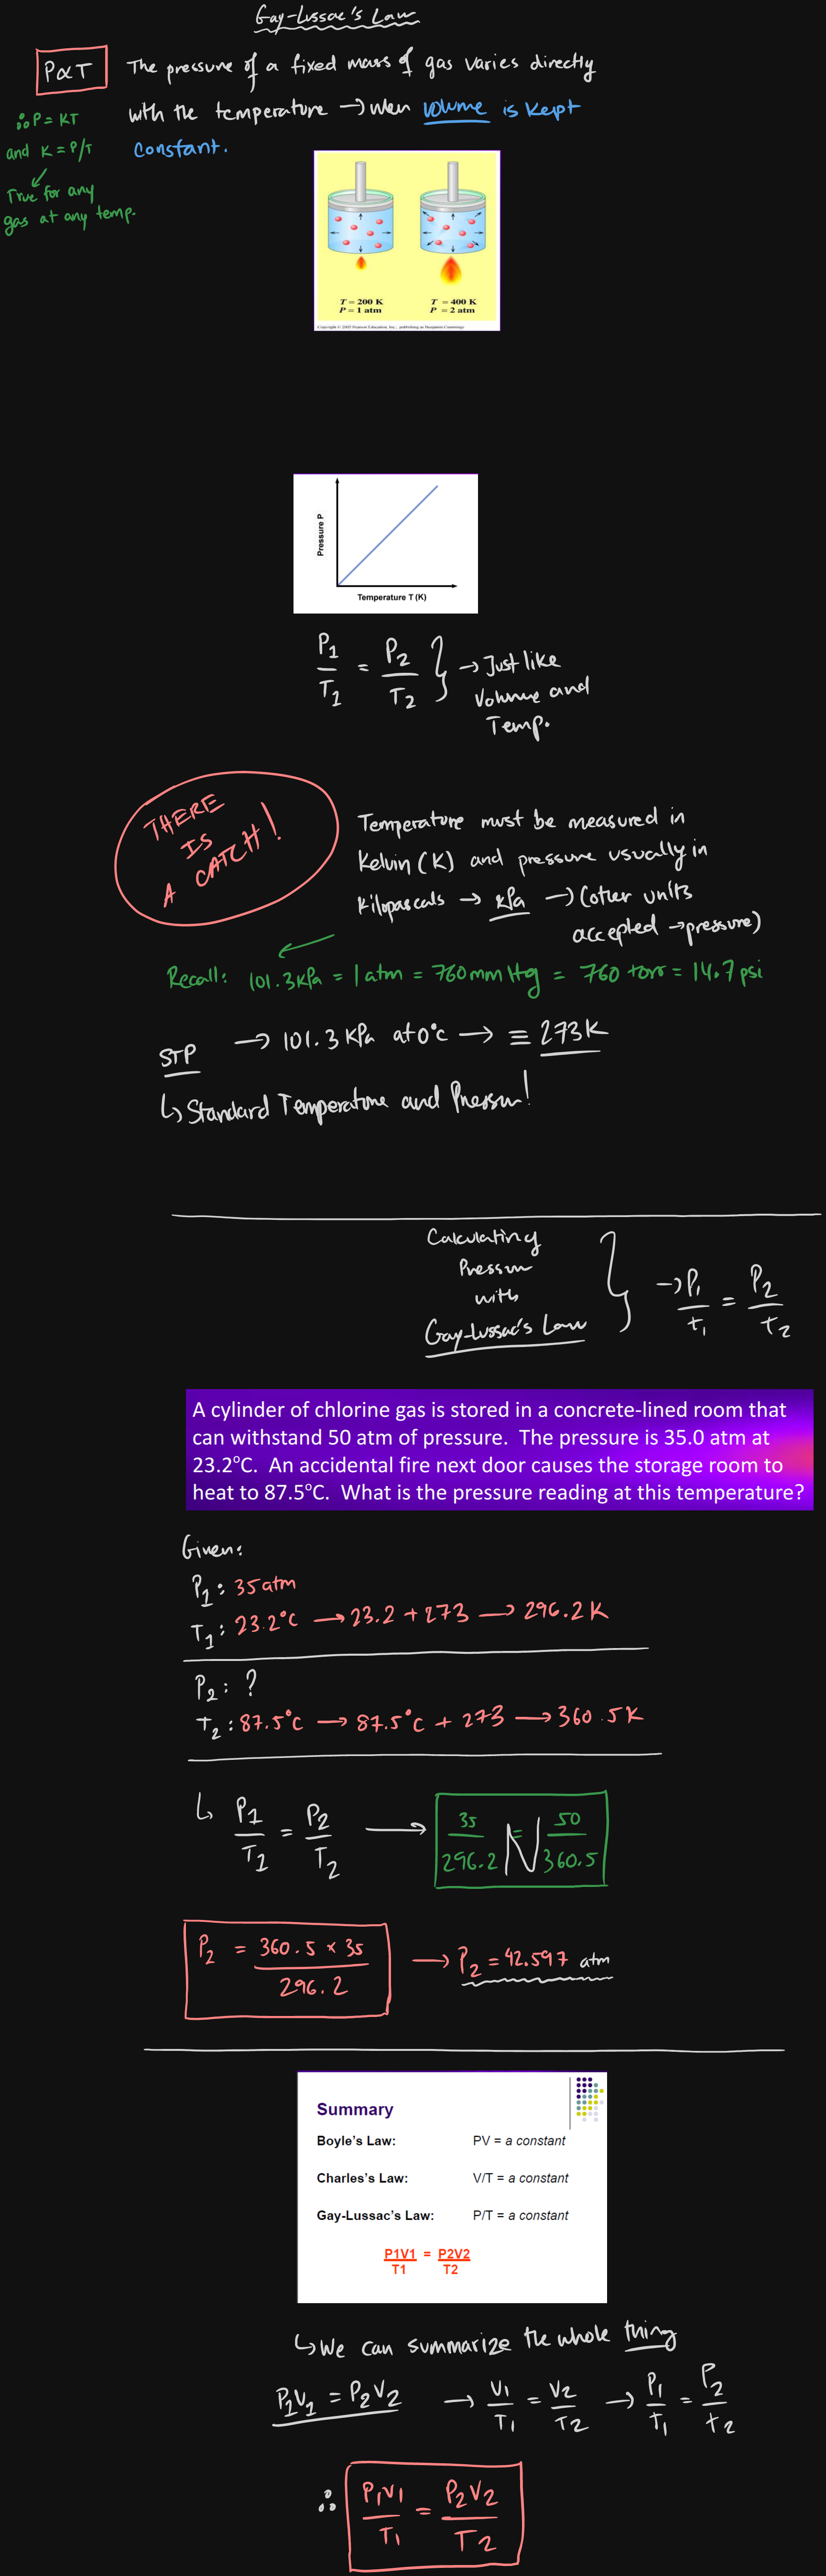 Gay-Lussac's Law
P∝T
The pressure of a fixed mass of gas varies directly
with the temperature → when volume is kept
constant.
∴ P = KT
and K = P/T
True for any
gas at any temp.
T = 200 K
P = 1 atm
T = 400 K
P = 2 atm
Copyright © 2005 Pearson Education, Inc., publishing as Benjamin Cummings
Pressure P
Temperature T (K)
P1/T1 = P2/T2 } → Just like
Volume and
Temp.
THERE
IS
A CATCH!
Temperature must be measured in
Kelvin (K) and pressure usually in
Kilopascals → kPa → (other units
accepted → pressure)
Recall: 101.3 kPa = 1 atm = 760 mm Hg = 760 torr = 14.7 psi
STP → 101.3 KPa at 0°C → ≡ 273 K
↳ Standard Temperature and Pressure!
Calculating
Pressure
with
Gay-Lussac's Law
} → P1/t1 = P2/t2
A cylinder of chlorine gas is stored in a concrete-lined room that
can withstand 50 atm of pressure. The pressure is 35.0 atm at
23.2°C. An accidental fire next door causes the storage room to
heat to 87.5°C. What is the pressure reading at this temperature?
Given:
P1: 35 atm
T1: 23.2°C → 23.2 + 273 → 296.2 K
P2: ?
T2: 87.5°C → 87.5°C + 273 → 360.5 K
↳ P1/T1 = P2/T2 → 35/296.2 = 50/360.5
P2 = 360.5 × 35 / 296.2 → P2 = 42.597 atm
Summary
Boyle's Law: PV = a constant
Charles's Law: V/T = a constant
Gay-Lussac's Law: P/T = a constant
P1V1 = P2V2
T1 T2
↳ We can summarize the whole thing
P1V1 = P2V2 → V1/T1 = V2/T2 → P1/t1 = P2/t2
∴ P1V1/T1 = P2V2/T2